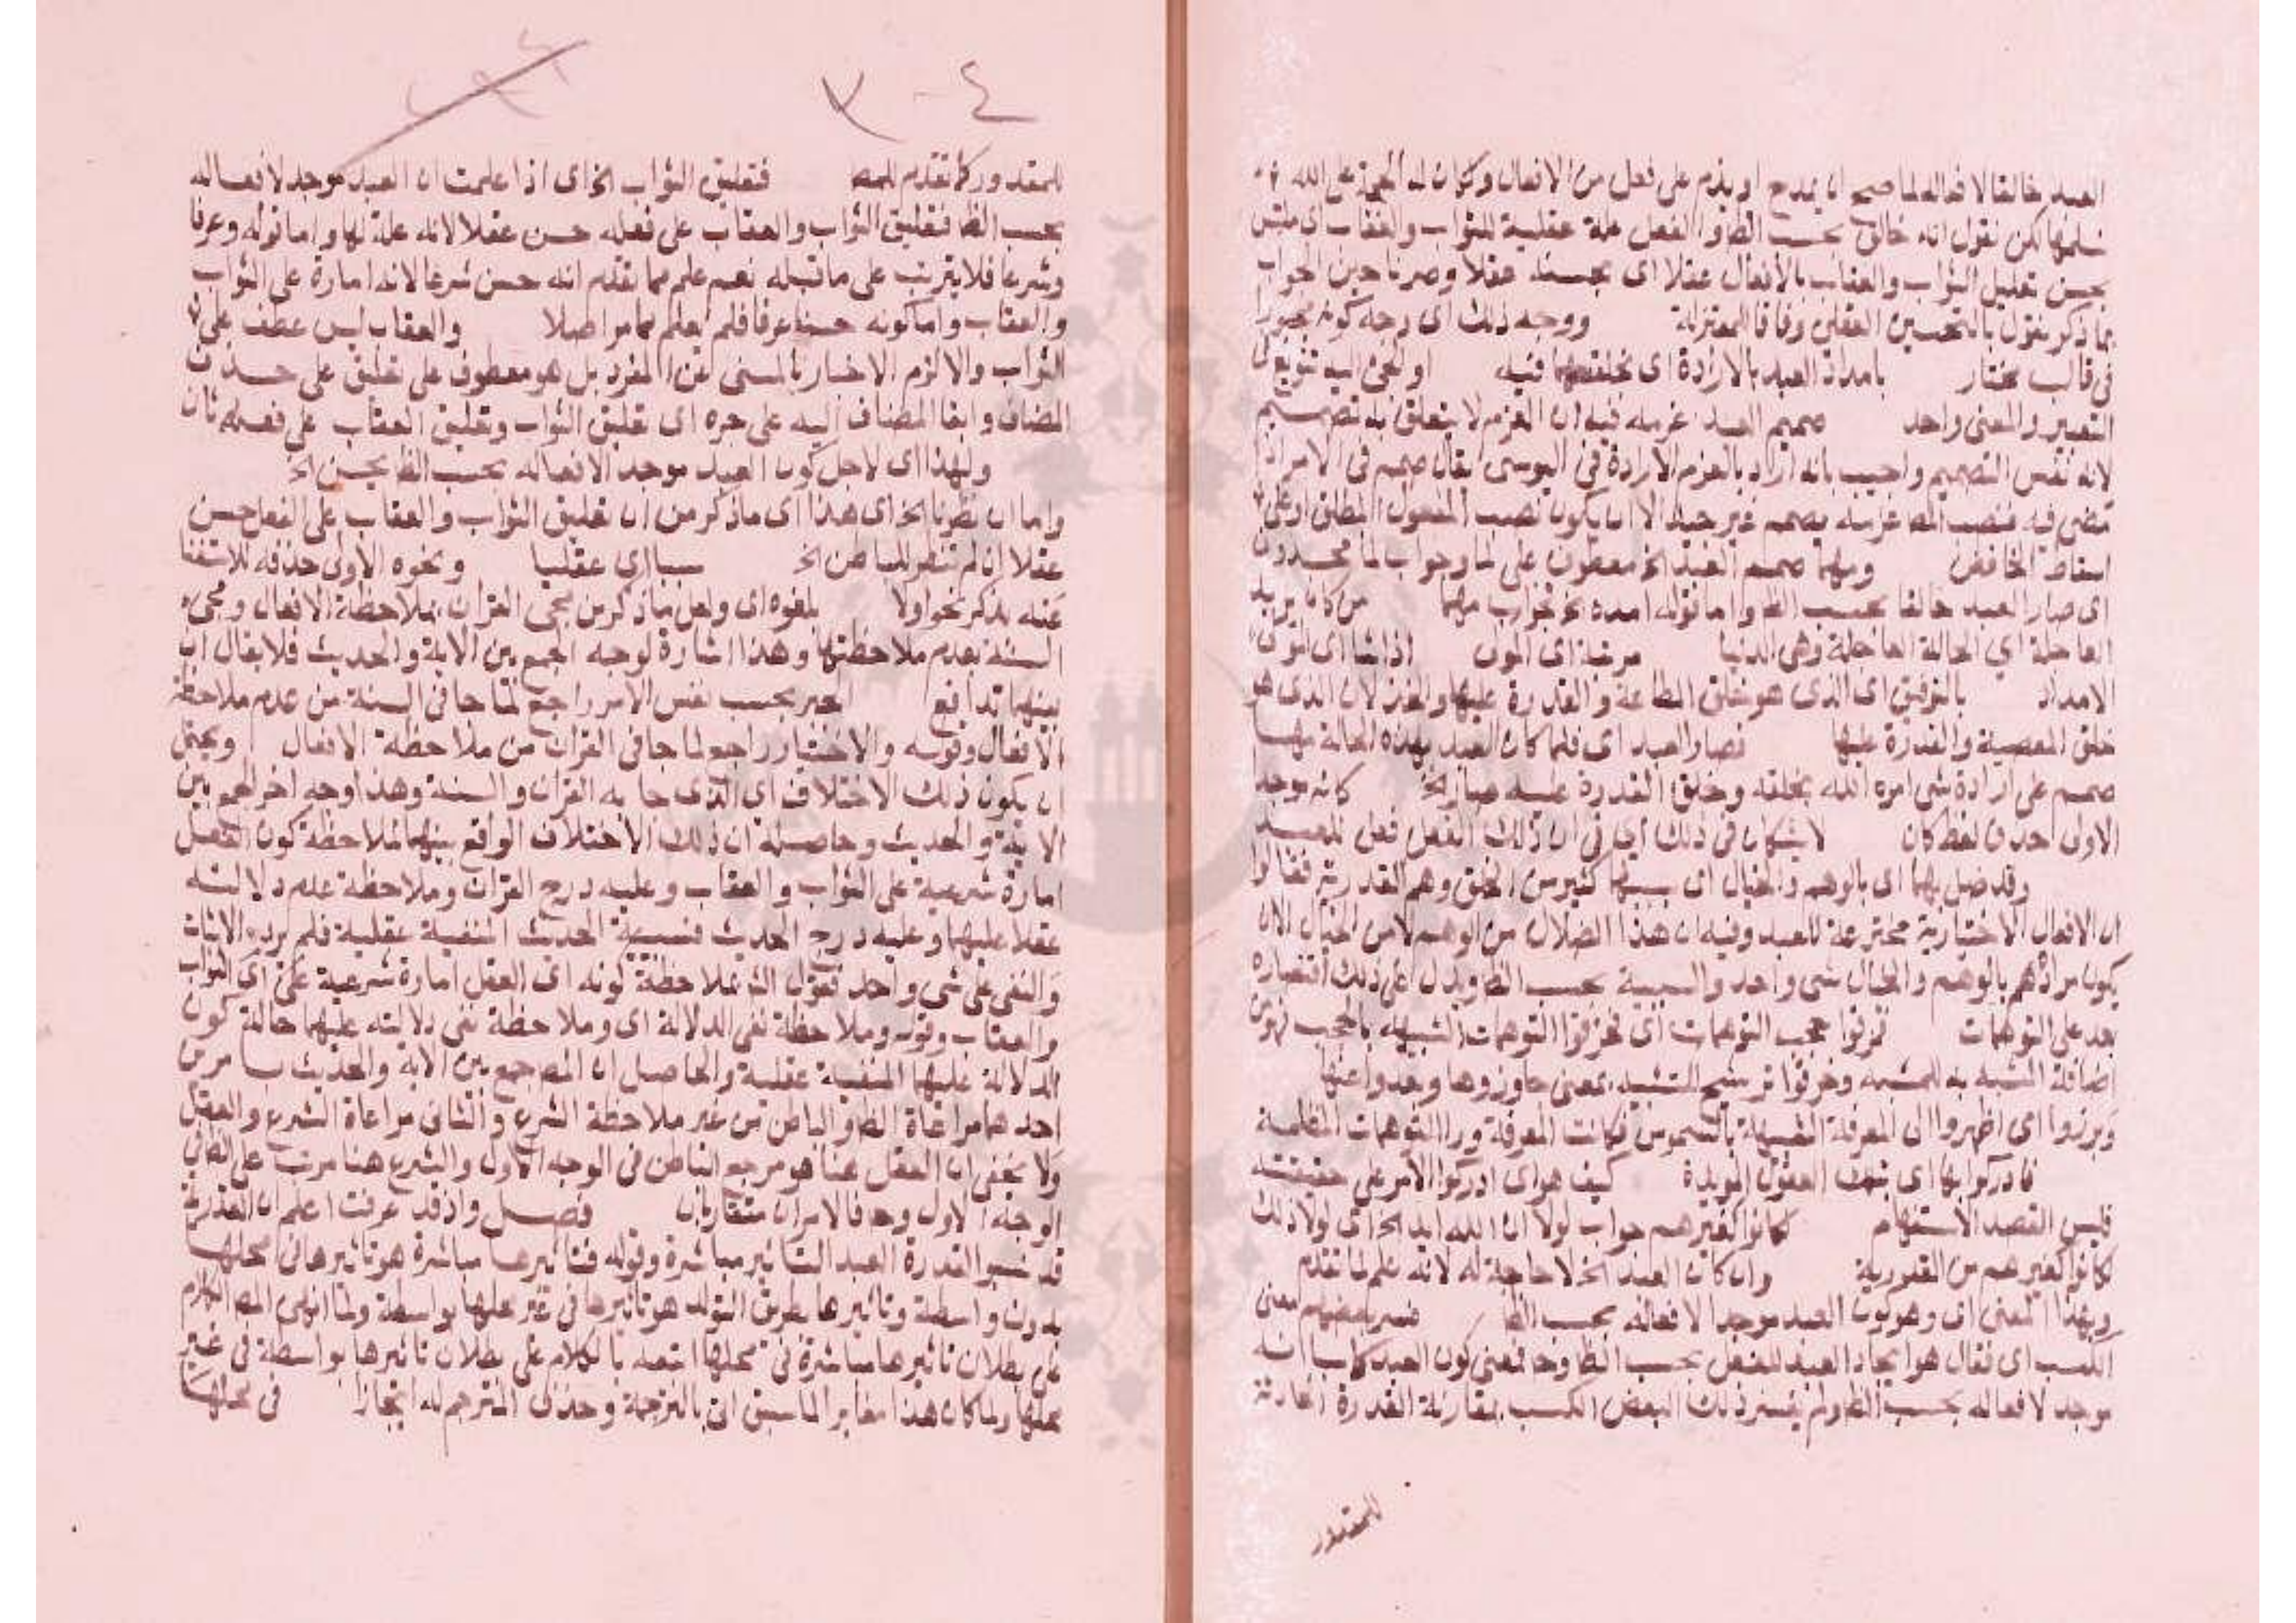 العبد خالقا لافعاله لما صح ان يمدح او يذم على فعل من الافعال ولكان له الحجة على الله
سلمها لكن نقول انه خالق بحسب الظ والفعل علة عقلية للثواب والعقاب اى
يحسن تعليل الثواب والعقاب بالافعال عقلا اى بحسنه عقلا وصرنا حين الجواب
بما ذكر نقول بالتحسين العقلى وفاقا للمعتزلة ووجه ذلك اى وجه كونه مجبورا
فى قالب مختار بامداد العبد بالارادة اى بخلقها فيه او لجئ اليه تنويع فى
التعبير والمعنى واحد صميم العبد عزمه فيه ان العزم لا يتعلق به تصميم
لانه نفس التصميم واجيب بانه اراد بالعزم الارادة فى اليوسى يقال صمم فى الامر اذا
مضى فيه فنصب المص عزمه بصمم غير جيد الا ان يكون نصب المفعول المطلق او على
اسقاط الخافض ومهما صمم العبد الخ معطوف على لما وجواب لما محذوف
اى صار العبد خالقا بحسب الظ واما قوله امده الخ فجواب مهما من كان يريد
العاجلة اي الحالة العاجلة وهى الدنيا مرضه اى الموت اذا شا اى
الامداد بالتوفيق اى الذى هو خلق الطاعة والقدرة عليها والعز لان الذى هو
خلق المعصية والقدرة عليها فصار العبد اى فلما كان العبد بهذه الحالة مهما
صمم على ارادة شى امره الله بخلقه وخلق القدرة عليه صار الخ كانه موجد
الاولى حذف لفظ كان لا يشكان فى ذلك اى فى ان ذلك الفعل فعل للعبد
وقد ضل بهما اى بالوهم والخيال اى بسببهما كثير من الخلق وهم القدرية فقالوا
ان الافعال الاختيارية مخترعة للعبد وفيه ان هذا الضلال من الوهم لا من الخيال الا ان
يكون مرادهم بالوهم والخيال شى واحد والسببية بحسب الظ ويدل على ذلك اقتصاره
بعد على التوهمات خرقوا حجب التوهمات اى خرقوا التوهمات الشبيهة بالحجب فهو من
اضافة المشبه به للمشبه وخرقوا ترشيح للتشبيه بمعنى جاوزوها وبعدوا عنها
وبرزوا اى اظهروا الى المعرفة الشبيهة بالشموس فكانت المعرفة ورا التوهمات المظلمة
فادركوا بها اى بتلك العقول المويدة كيف هو اى ادركوا الامر على حقيقته
فليس القصد الاستفهام كانوا كغيرهم جواب لولا ان الله ايد الخ اى لولا ذلك
لكانوا كغيرهم من القدورية وان كان العبد الخ لا حاجة له لانه علم لما تقدم
وبهذا المعنى اى وهو كون العبد موجدا لافعاله بحسب الظ فسر بعضهم معنى
الكسب اى فقال هو ايجاد العبد للفعل بحسب الظ وح فمعنى كون العبد كاسبا انه
موجد لافعاله بحسب الظ ولم يفسر ذلك البعض الكسب بمقارنة القدرة الحادثة
للمقدور
٤-٢
للمقدور كما تقدم للمص فتعليق الثواب الخ اى اذا علمت ان العبد موجد لافعاله
بحسب الظ فتعليق الثواب والعقاب على فعله حسن عقلا لانه علة لها واما قوله وعرفا
وشرعا فلا يترتب على ما قبله نعم علم مما تقدم انه حسن شرعا لانه امارة على الثواب
والعقاب واما كونه حسنا عرفا فلم يعلم مما مر اصلا والعقاب ليس عطف على
الثواب والا لزم الاخبار بالمسنى عن المفرد بل هو معطوف على تعليق على حذف
المضاف وابقا المضاف اليه على جره اى تعليق الثواب وتعليق العقاب على فعله ثان
ولهذا اى لاجل كون العبد موجد الافعاله بحسب الظ يحسن الخ
واما ان نظرنا الخ اى هذا اى ما ذكر من ان تعليق الثواب والعقاب على الفعل حسن
عقلا ان لم تنظر للباطن الخ سببا اى عقليا ونحوه الاولى حذفه للاستغنا
عنه بذكر نحو اولا لمفوه اى ولعل ما ذكر من مجى القران بملاحظة الافعال ومجى
السنة بعدم ملاحظتها وهذا اشارة لوجه الجمع بين الاية والحديث فلا يقال ان
بينهما تدافع الجبر بحسب نفس الامر راجع لما جا فى السنة من عدم ملاحظة
الافعال وقوله والاختيار راجع لما جا فى القران من ملاحظة الافعال ويحتمل
ان يكون ذلك الاختلاف اى الذى جا به القران والسنة وهذا وجه اخر للجمع بين
الاية والحديث وحاصله ان ذلك الاختلاف الواقع بينهما بملاحظة كون الفعل
امارة شرعية على الثواب والعقاب وعليه درج القران وملاحظة عدم دلالته
عقلا عليهما وعليه درج الحديث فسببية الحديث المنفية عقلية فلم يرد الاثبات
والنفى على شى واحد فقول الش بملاحظة كونه اى الفعل امارة شرعية على اى الثواب
والعقاب وقوله وملاحظة نفى الدلالة اى وملاحظة نفى دلالته عليهما حالة كون
الدلالة عليها المنفية عقلية والحاصل ان المص جمع بين الاية والحديث بامرين
احدهما مراعاة الظ والباطن من غير ملاحظة الشرع والثانى مراعاة الشرع والعقل
ولا يخفى ان العقل هنا هو مرجع الباطن فى الوجه الاول والشرع هنا مرتب على الظ فى
الوجه الاول وح فالامران متقاربان فصل واذ قد عرفت اعلم ان القدرية
قد نسبوا لقدرة العبد التاثير مباشرة وقوله فتاثيرها مباشرة هو تاثيرها فى محلها
بدون واسطة وتاثيرها بطريق التولد هو تاثيرها فى غير محلها بواسطة ولما انهى المص الكلام
على بطلان تاثيرها مباشرة فى محلها اتبعه بالكلام على بطلان تاثيرها بواسطة فى غير
محلها ولما كان هذا مغايرا لما سبق اتى بالترجمة وحذف المترجم له ايجازا فى محلها